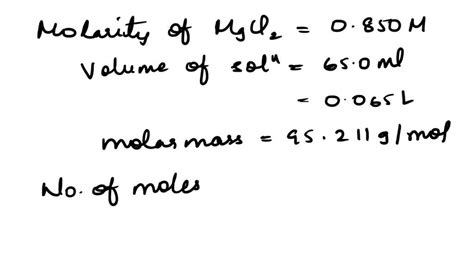 Molarity of MgCl₂ = 0.850 M
Volume of solⁿ = 65.0 ml
= 0.065 L
molar mass = 95.211 g/mol
No. of moles